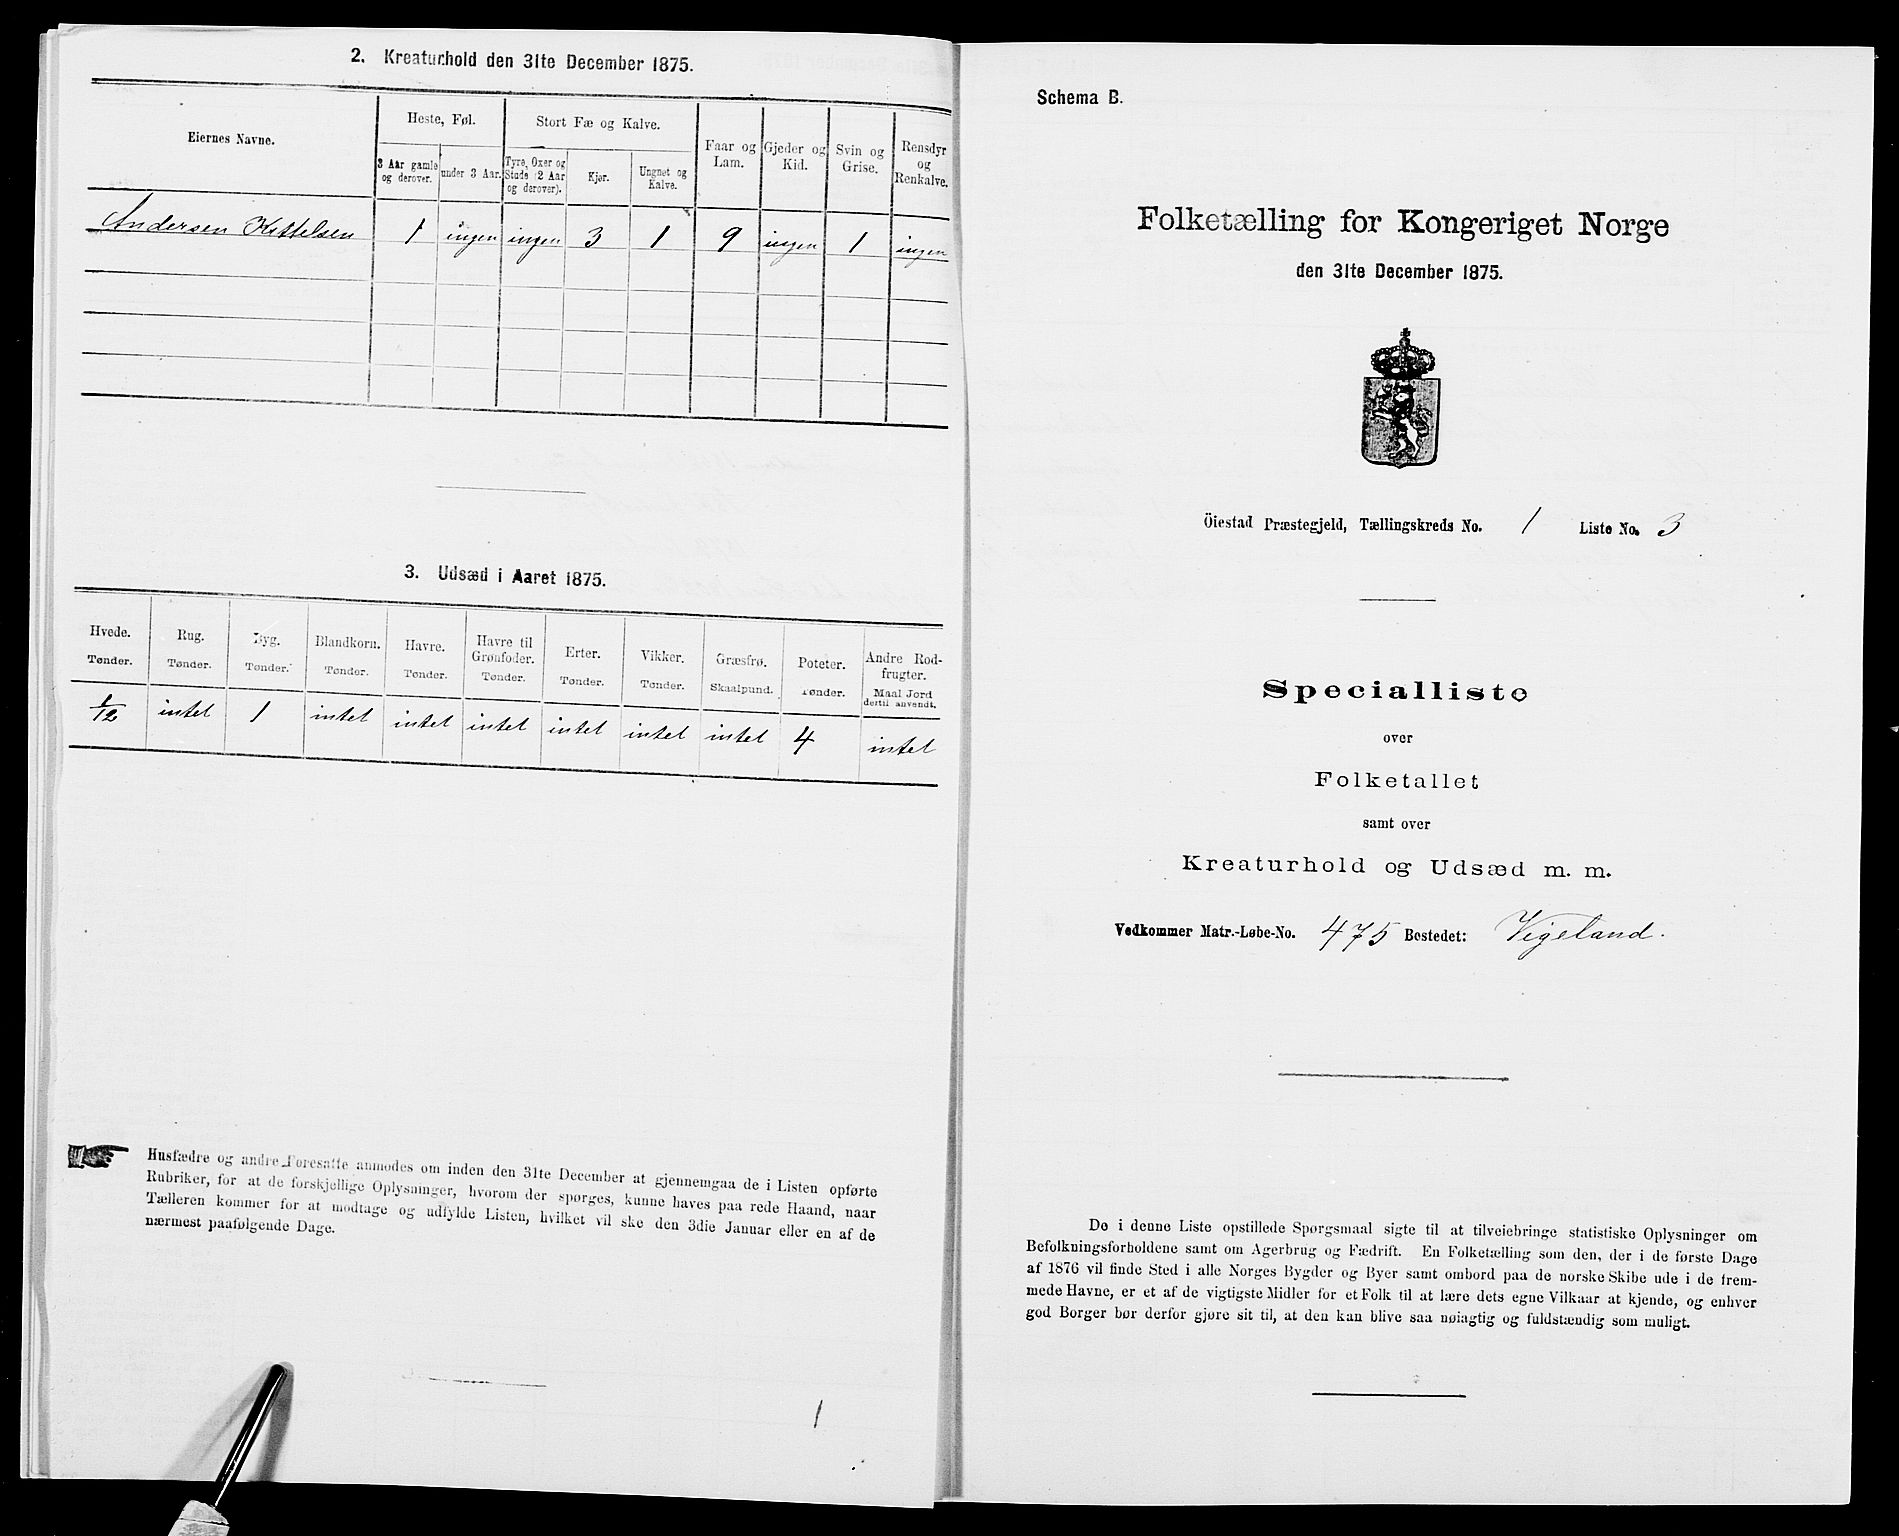 2. Kreaturhold den 31te December 1875.
Eiernes Navne.
Heste, Føl.
Stort Fæ og Kalve.
Faar og Lam.
Gjeder og Kid.
Svin og Grise.
Rensdyr og Renkalve.
3 Aar gamle og derover.
under 3 Aar.
Tyre, Oxer og Stude (2 Aar og derover).
Kjør.
Ungnet og Kalve.
Andersen Kittelsen 1 ingen ingen 3 1 9 ingen 1 ingen
3. Udsæd i Aaret 1875.
Hvede. Rug. Byg. Blandkorn. Havre. Havre til Grønfoder. Erter. Vikker. Græsfrø. Poteter. Andre Rodfrugter.
Tønder. Tønder. Tønder. Tønder. Tønder. Tønder. Tønder. Tønder. Skaalpund. Tønder. Maal Jord dertil anvendt.
1/12 intet 1 intet intet intet intet intet intet 4 intet
Husfædre og andre Foresatte anmodes om inden den 31te December at gjennemgaa de i Listen opførte
Rubriker, for at de forskjellige Oplysninger, hvorom der spørges, kunne haves paa rede Haand, naar
Tælleren kommer for at modtage og udfylde Listen, hvilket vil ske den 3die Januar eller en af de
nærmest paafølgende Dage.
1
Schema B.
Folketælling for Kongeriget Norge
den 31te December 1875.
Öiestad Præstegjeld, Tællingskreds No. 1 Liste No. 3
Specialliste
over
Folketallet
samt over
Kreaturhold og Udsæd m. m.
Vedkommer Matr.-Løbe-No. 475 Bostedet: Vigeland.
De i denne Liste opstillede Spørgsmaal sigte til at tilveiebringe statistiske Oplysninger om
Befolkningsforholdene samt om Agerbrug og Fædrift. En Folketælling som den, der i de første Dage
af 1876 vil finde Sted i alle Norges Bygder og Byer samt ombord paa de norske Skibe ude i de frem-
mede Havne, er et af de vigtigste Midler for et Folk til at lære dets egne Vilkaar at kjende, og enhver
god Borger bør derfor gjøre sit til, at den kan blive saa nøiagtig og fuldstændig som muligt.